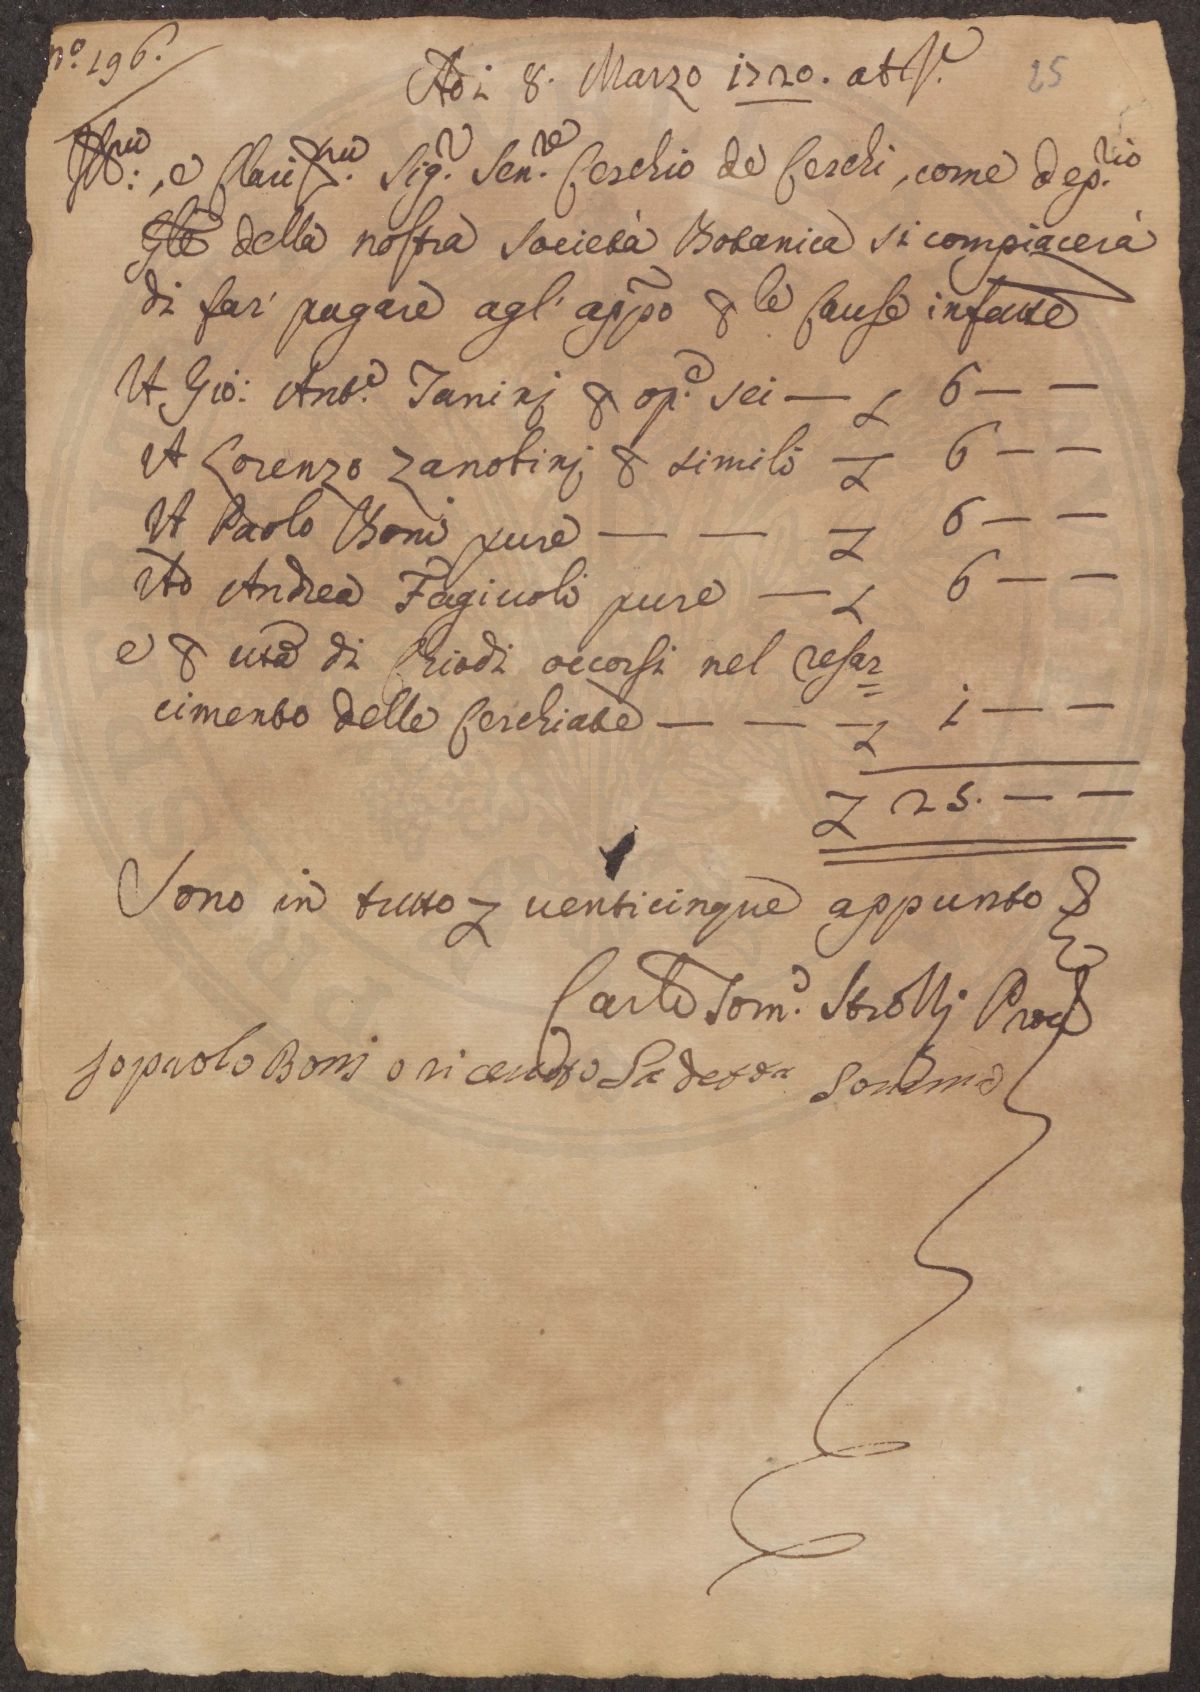 n.º 196.
Adi 8. Marzo 1720. ab Inc.
25
Ill.mo, e Clariss.mo Sig.r Sen.re Cerchio de Cerchi, come Dep.rio
Gle della nostra Società Botanica si compiacerà
di far' pagare agl' appo p le cause infatte
A Gio: Ant.o Tanini p op.e sei — L 6 — —
A Lorenzo Zanobinj p simili — L 6 — —
A Paolo Boni pure — — L 6 — —
Ad Andrea Fagiuoli pure — L 6 — —
e p uta di Chiodi occorsi nel resar=
cimento delle Cerchiate — — — L 1 — —
L 25. — —
Sono in tutto L venticinque appunto
Carlo Tom.o Strozzj
Io paolo Boni o riceuto La detta Somma